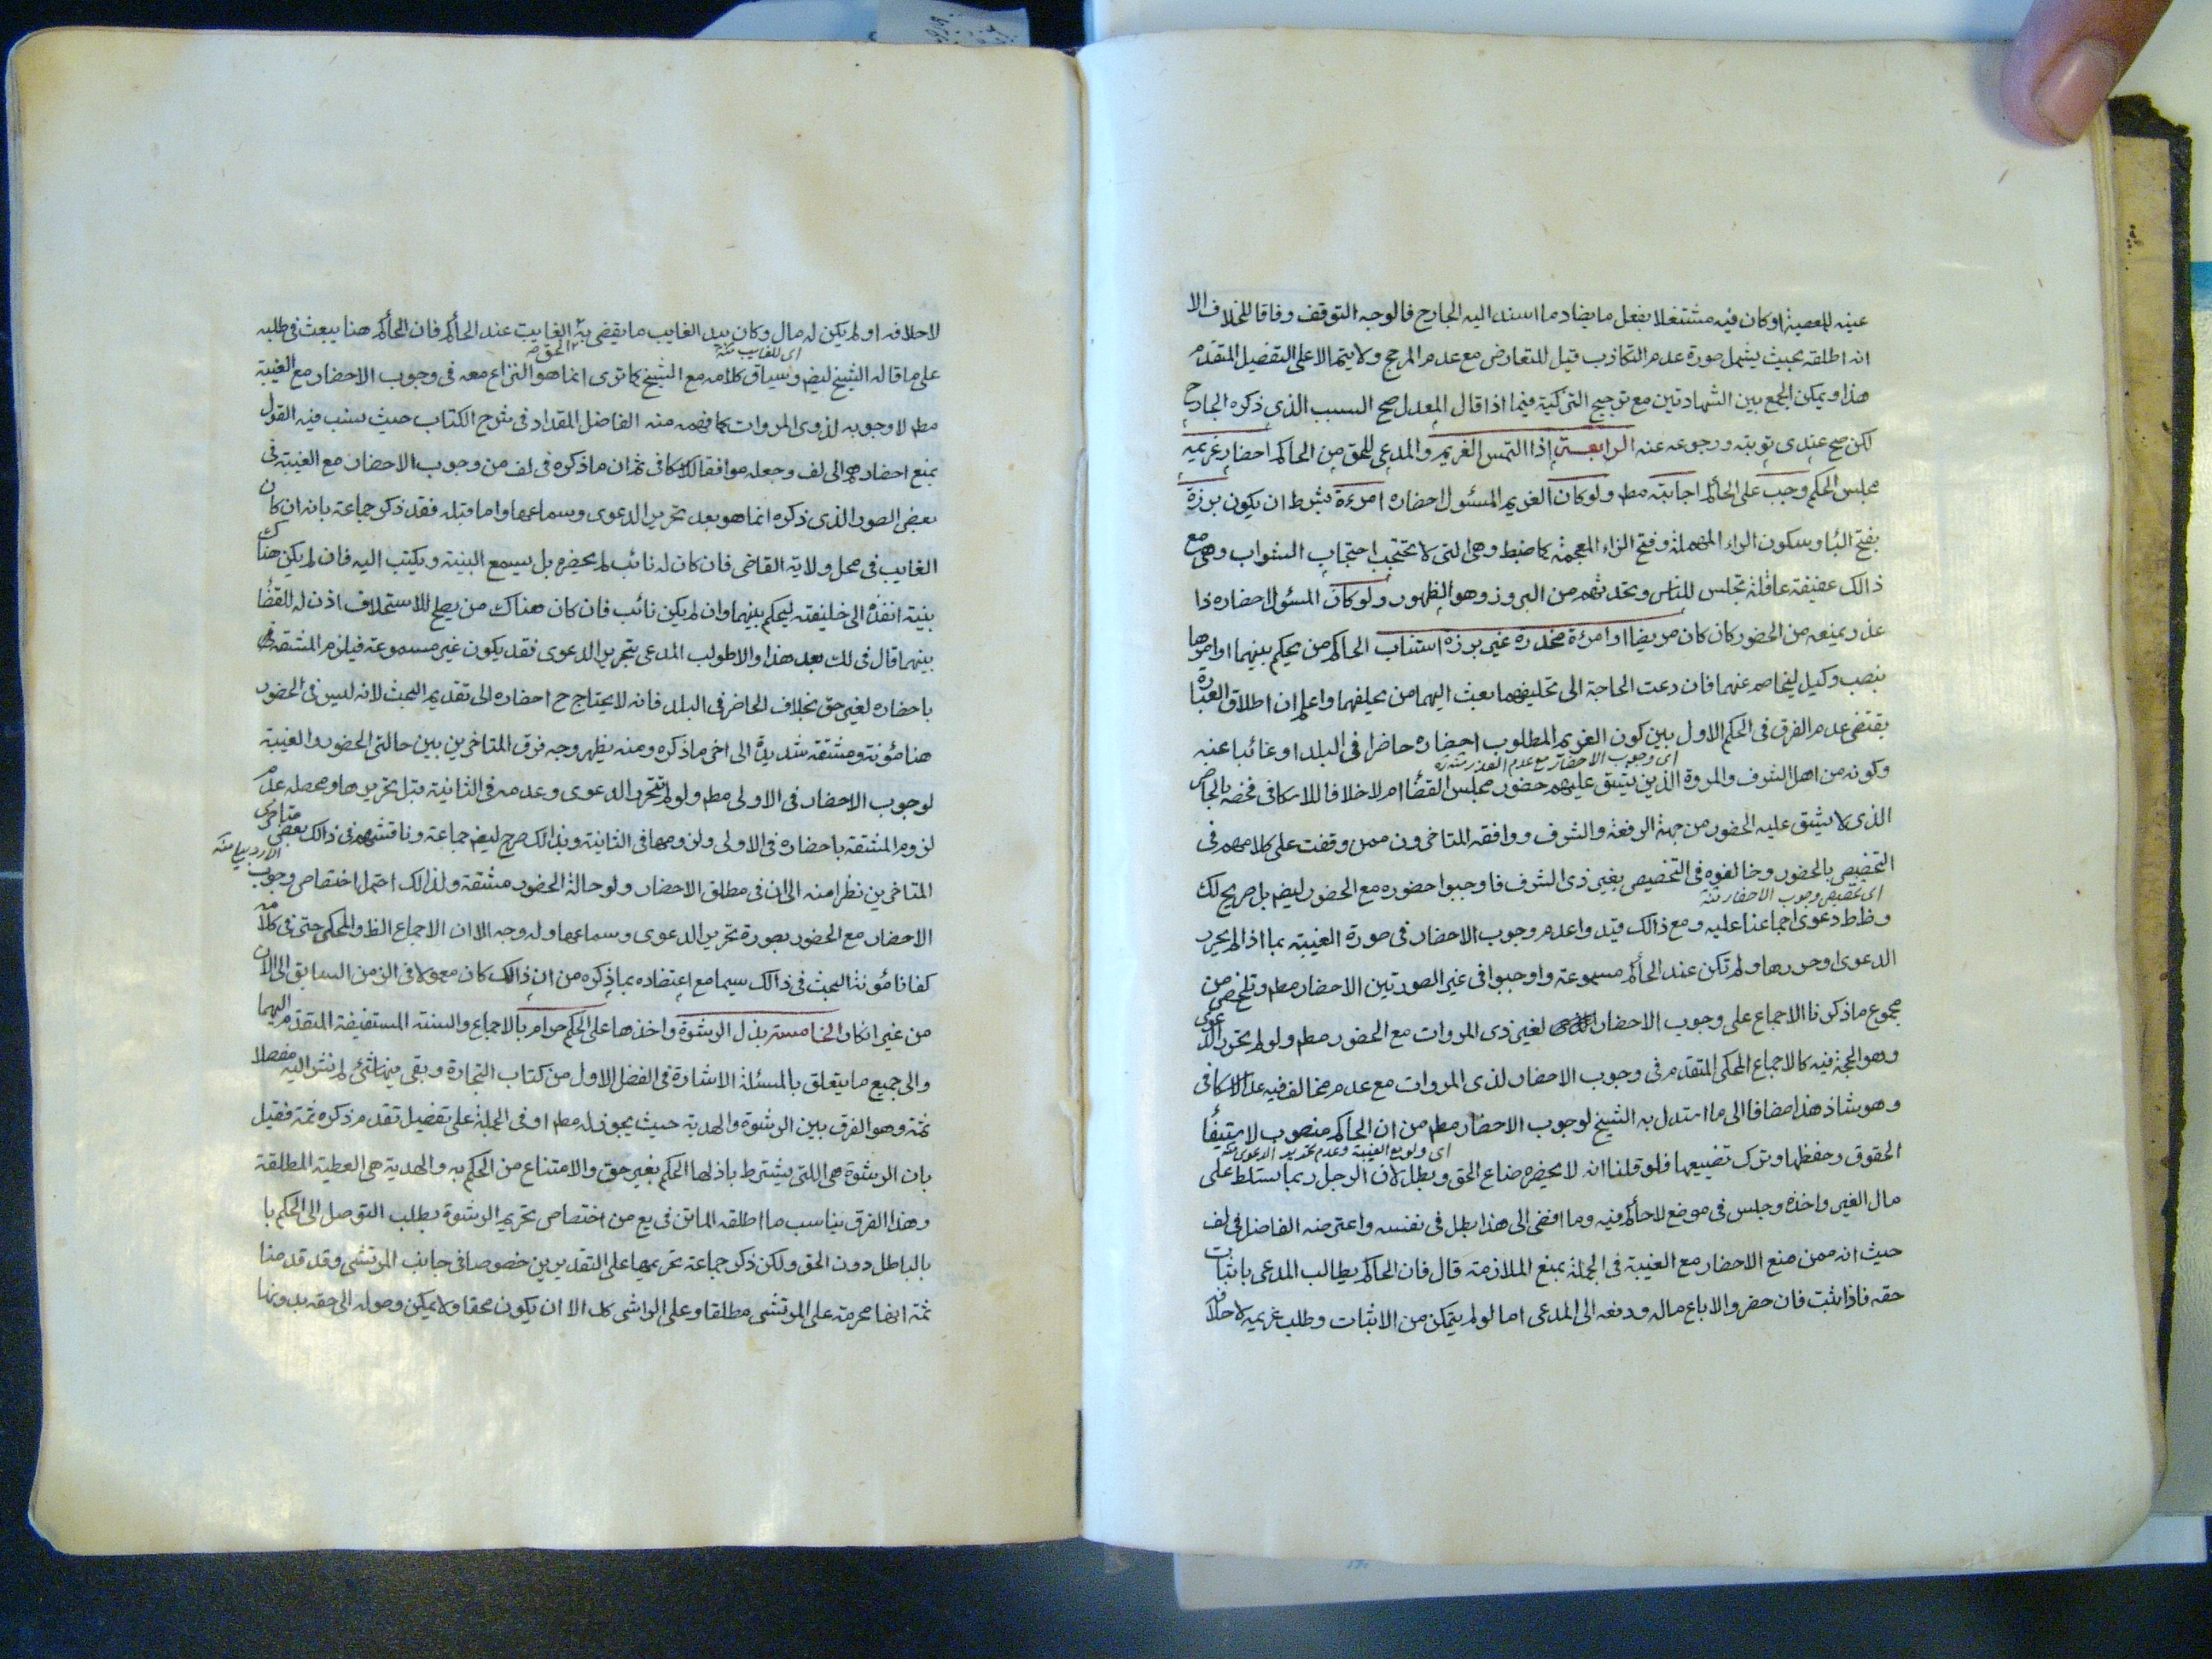 عينه للمعصية او كان فيه مشتغلا بفعل ما يضاد ما اسند اليه الجارح فالوجه التوقف وفاقا للخلاف الا
انه اطلقه بحيث يشمل صورة عدم التكاذب قيل للتعارض مع عدم المرجح ولا يتم الا على التفصيل المتقدم
هذا ويمكن الجمع بين الشهادتين مع ترجيح التزكية فيما اذا قال المعدل صح السبب الذي ذكره الجارح
لكن صح عندي توبته ورجوعه عنه الرابعة اذا التمس الغريم والمدعي للحق من الحاكم احضار غريمه
مجلس الحكم وجب على الحاكم اجابته مطم ولو كان الغريم المسئول احضاره امرءة بشرط ان يكون برزة
بفتح الباء وسكون الراء المهملة وفتح الزاء المعجمة كما ضبط وهي التي لا تحتجب احتجاب الشواب وهي مع
ذالك عفيفة عاقلة تجلس للناس وتحدثهم من البروز وهو الظهور ولو كان المسئول احضاره ذا
عذر يمنعه من الحضور كان كان مريضا او امرءة مخدرة غير برزة استناب الحاكم من يحكم بينهما او امرها
بنصب وكيل ليخاصم عنهما فان دعت الحاجة الى تحليفهما بعث اليهما من يحلفهما واعلم ان اطلاق العبارة
يقتضي عدم الفرق في الحكم الاول بين كون الغريم المطلوب احضاره حاضرا في البلد او غائبا عنه
اى وجوب الاحضار مع عدم العذر منه
وكونه من اهل الشرف والمروة الذين يشق عليهم حضور مجلس القضاء ام لا خلافا للاسكافي فخصه بالحاضر
الذي لا يشق عليه الحضور من جهة الرفعة والشرف ووافقه المتاخرون ممن وقفت على كلامهم في
التخصيص بالحضور وخالفوه في التخصيص بغير ذى الشرف فاوجبوا حضوره مع الحضور ليضم بل صريح لك
اى تخصيص وجوب الاحضار منه
وظ ط دعوى اجماعنا عليه ومع ذالك قيدوا عدم وجوب الاحضار في صورة الغيبة بما اذا لم يحرر
الدعوى او حررها ولم تكن عند الحاكم مسموعة واوجبوا في غير الصورتين الاحضار مطم وتلخص من
مجموع ما ذكرنا الاجماع على وجوب الاحضار لغير ذى المروات مع الحضور مطم ولو لم يتحرر الدعوى
وهو الحجة فيه كالاجماع المحكي المتقدم في وجوب الاحضار لذى المروات مع عدم مخالف فيه عدا الاسكافي
وهو شاذ هذا مضافا الى ما استدل به الشيخ لوجوب الاحضار مطم من ان الحاكم منصوب لاستيفاء
اى ولو مع الغيبة وعدم تحرير الدعوى منه
الحقوق وحفظها وترك تضييعها فلو قلنا انه لا يحضره ضاع الحق وبطل لان الرجل ربما تسلط على
مال الغير واخذه وجلس في موضع لا حاكم فيه وما افضى الى هذا بطل في نفسه واعترضه الفاضل في لف
حيث انه ممن منع الاحضار مع الغيبة في الجملة بمنع الملازمة قال فان الحاكم يطالب المدعي باثبات
حقه فاذا ثبت فان حضر والا باع ماله ودفعه الى المدعي اما لو لم يتمكن من الاثبات وطلب غريمه لاحلافه
لاحلافه او لم يكن له مال وكان بيد الغايب ما يقضي به الغايبت عند الحاكم فان الحاكم هنا يبعث في طلبه
اى للغايب منه الحق
على ما قاله الشيخ ليضم وسياق كلامه مع الشيخ كما ترى انما هو النزاع معه في وجوب الاحضار مع الغيبة
مطم لا وجوبه لذوى المروات كما فهمه منه الفاضل المقداد في شرح الكتاب حيث نسب فيه القول
بمنع احضارهم الى لف وجعله موافقا للاسكافي ثم ان ما ذكره في لف من وجوب الاحضار مع الغيبة في
بعض الصور الذي ذكره انما هو بعد تحرير الدعوى وسماعها واما قبله فقد ذكر جماعة بانه ان كان
الغايب في محل ولاية القاضي فان كان له نائب لم يحضره بل يسمع البينة ويكتب اليه فان لم يكن هناك
بينة انفذه الى خليفته ليحكم بينهما وان لم يكن نائب فان كان هناك من يصلح للاستخلاف اذن له للقضاء
بينهما قال في لك بعد هذا والا طولب المدعي بتحرير الدعوى فقد يكون غير مسموعة فيلزم المشقة
باحضاره لغير حق بخلاف الحاضر في البلد فانه لا يحتاج ح احضاره الى تقديم البحث لانه ليس في الحضور
هنا مؤنة ومشقة شديدة الى اخر ما ذكره ومنه يظهر وجه فرق المتاخرين بين حالتي الحضور والغيبة
لوجوب الاحضار في الاولى مطم ولو لم يتحرر الدعوى وعدمه في الثانية قبل تحريرها ومحصله عدم
لزوم المشقة باحضاره في الاولى ولزومها في الثانية وبذالك صرح ليضم جماعة وناقشهم في ذالك بعض متاخرى
الاردبيلي منه
المتاخرين نظرا منه الى ان في مطلق الاحضار ولو حالة الحضور مشقة ولذالك احتمل اختصاص وجوب
الاحضار مع الحضور بصورة تحرير الدعوى وسماعها وله وجه الا ان الاجماع الظ والمحكي حتى في كلامه
كفانا مؤنة البحث في ذالك سيما مع اعتضاده بما ذكره من ان ذالك كان معمولا في الزمن السابق الى الان
من غير انكار الخامسة بذل الرشوة واخذها على الحكم حرام بالاجماع والسنة المستفيضة المتقدم اليهما
والى جميع ما يتعلق بالمسئلة الاشارة في الفصل الاول من كتاب التجارة وبقى منها شئ لم نشر اليه مفصلا
ثمة وهو الفرق بين الرشوة والهدية حيث يجوز له مطم او في الجملة على تفصيل تقدم ذكره ثمة فقيل
بان الرشوة هى اللتى يشترط باذلها الحكم بغير حق والامتناع من الحكم به والهدية هى العطية المطلقة
وهذا الفرق يناسب ما اطلقه الماتن في يع من اختصاص تحريم الرشوة بطلب التوصل الى الحكم با
بالباطل دون الحق ولكن ذكر جماعة تحريمها على التقديرين خصوصا في جانب المرتشى وقد قدمنا
ثمة انها محرمة على المرتشى مطلقا وعلى الراشى كك الا ان يكون محقا ولا يمكن وصوله الى حقه بدونها